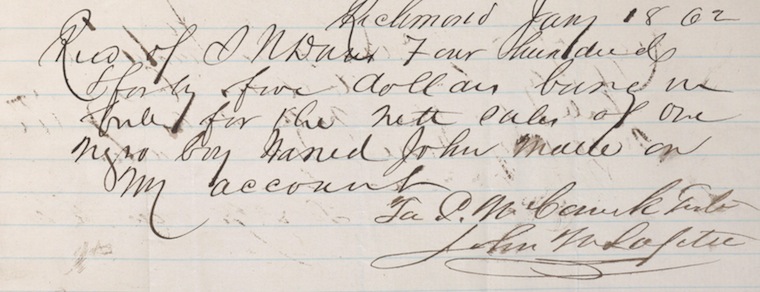 Richmond Jany 1862
Recd of Davis Four hundred
& forty five dollars being in
full for the nett sales of one
negro boy named John made on
My account
John